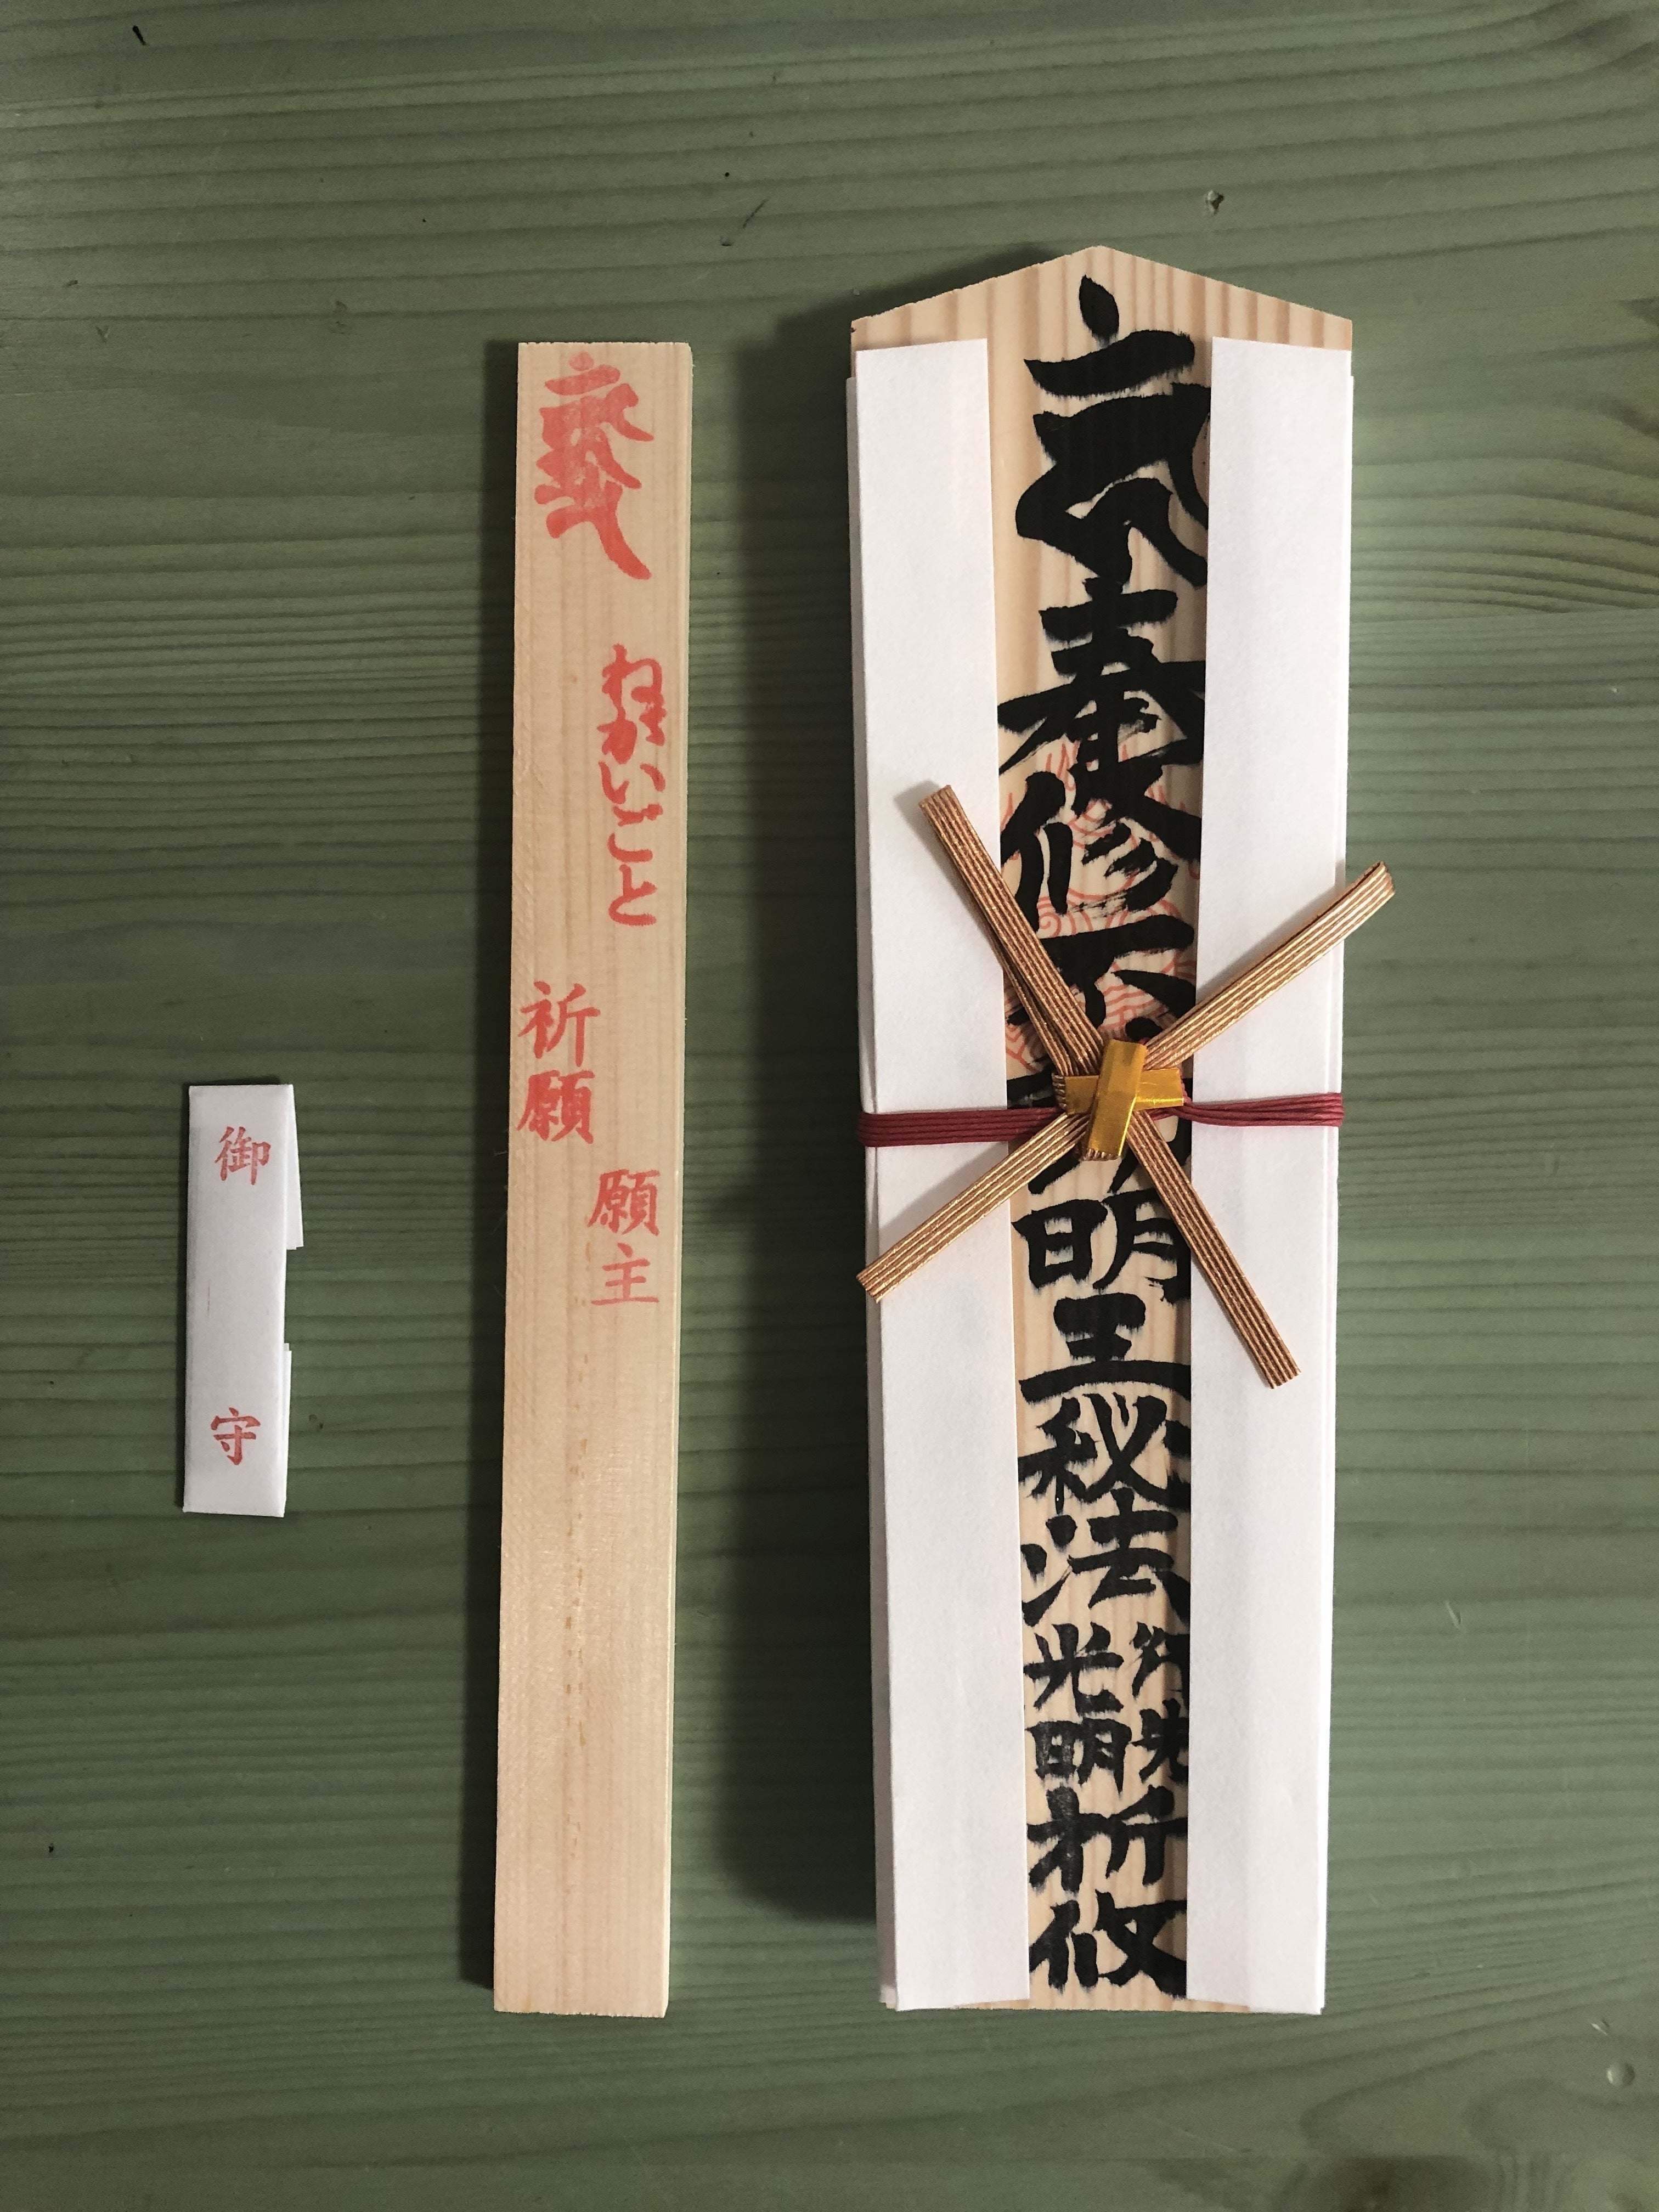 奉修不動明王秘法
光明
祈修
ねがいごと
祈願
願主
御守